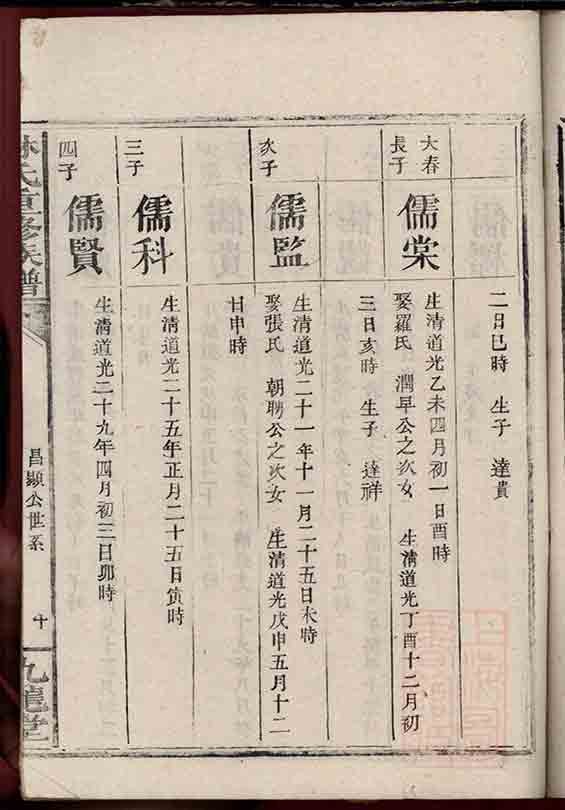 二日巳時 生子 達貴
大春
長子
儒棠
生清道光乙未四月初一日酉時
娶羅氏 潤早公之次女 生清道光丁酉十二月初
三日亥時 生子 達祥
次子
儒監
生清道光二十一年十一月二十五日未時
娶張氏 朝聘公之次女 生清道光戊申五月十二
日申時
三子
儒科
生清道光二十五年正月二十五日寅時
四子
儒賢
生清道光二十九年四月初三日卯時
林氏重修族譜
昌顯公世系
十
九龍堂